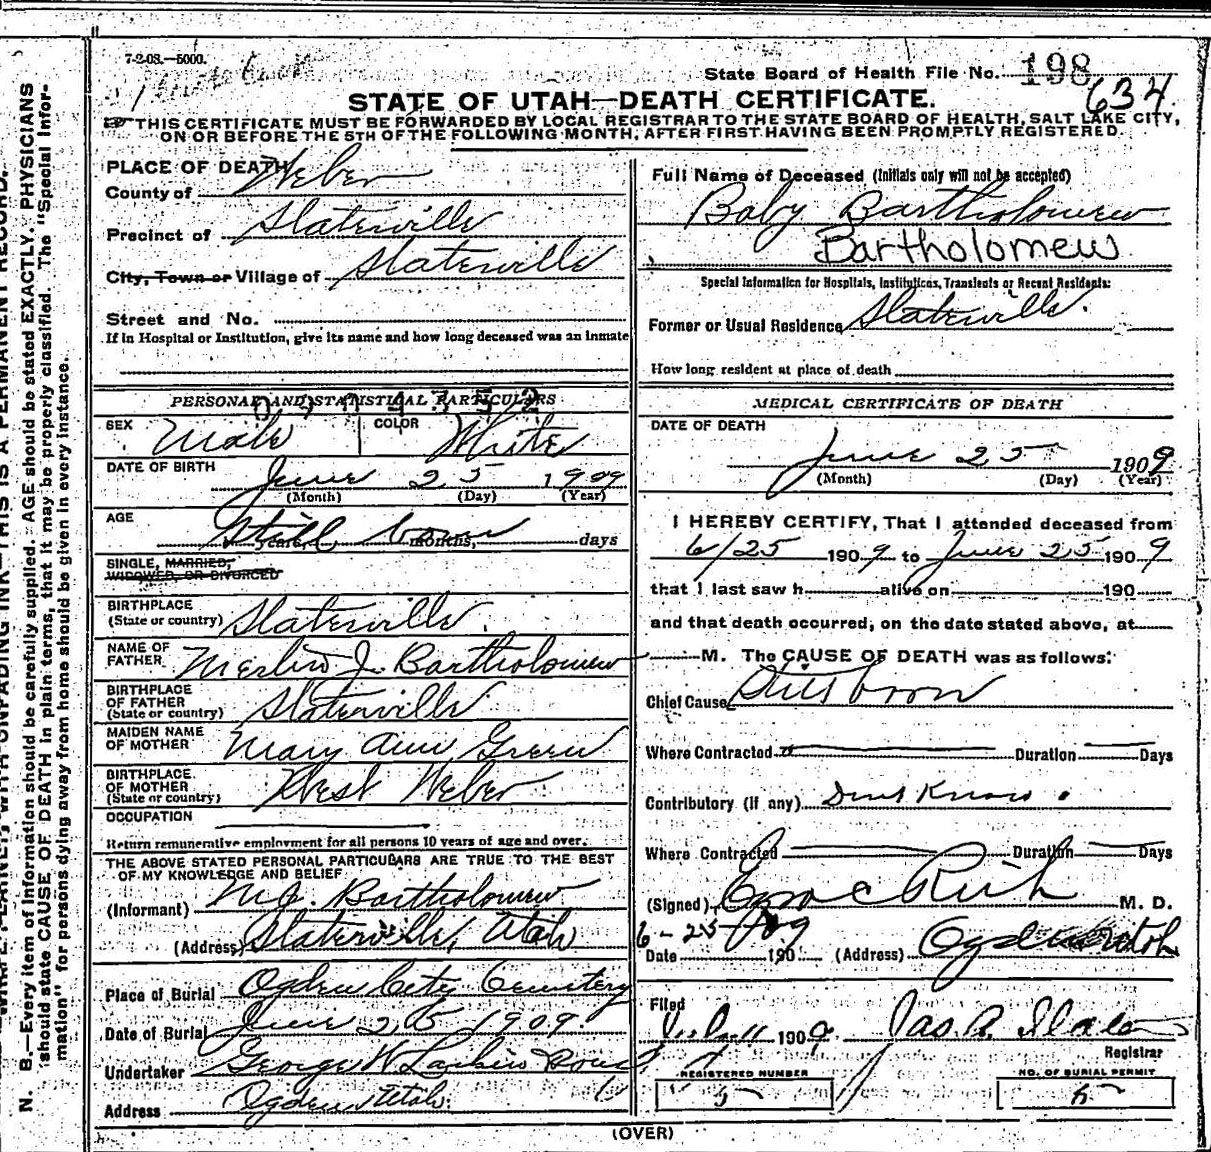 7-2-08.—5000.
State Board of Health File No. 198
634
STATE OF UTAH—DEATH CERTIFICATE.
THIS CERTIFICATE MUST BE FORWARDED BY LOCAL REGISTRAR TO THE STATE BOARD OF HEALTH, SALT LAKE CITY,
ON OR BEFORE THE 5TH OF THE FOLLOWING MONTH, AFTER FIRST HAVING BEEN PROMPTLY REGISTERED.
PLACE OF DEATH
County of Weber
Precinct of Slaterville
City, Town or Village of Slaterville
Street and No.
If in Hospital or Institution, give its name and how long deceased was an inmate
PERSONAL AND STATISTICAL PARTICULARS
SEX Male COLOR White
DATE OF BIRTH June 25 1909
(Month) (Day) (Year)
AGE Still born
years, months, days
SINGLE, MARRIED,
WIDOWED, OR DIVORCED
BIRTHPLACE
(State or country) Slaterville.
NAME OF
FATHER Merlin J. Bartholomew
BIRTHPLACE
OF FATHER
(State or country) Slaterville
MAIDEN NAME
OF MOTHER Mary Ann Green
BIRTHPLACE
OF MOTHER
(State or country) West Weber
OCCUPATION
Return remunerative employment for all persons 10 years of age and over.
THE ABOVE STATED PERSONAL PARTICULARS ARE TRUE TO THE BEST
OF MY KNOWLEDGE AND BELIEF
(Informant) M. J. Bartholomew
(Address) Slaterville, Utah
Place of Burial Ogden City Cemetery
Date of Burial June 25 1909.
Undertaker George W Larkin Sons
Address Ogden Utah.
Full Name of Deceased (Initials only will not be accepted)
Baby Bartholomew
Bartholomew
Special Information for Hospitals, Institutions, Transients or Recent Residents:
Former or Usual Residence Slaterville.
How long resident at place of death
MEDICAL CERTIFICATE OF DEATH
DATE OF DEATH
June 25 1909
(Month) (Day) (Year)
I HEREBY CERTIFY, That I attended deceased from
6/25 1909 to June 25 1909
that I last saw h alive on 190
and that death occurred, on the date stated above, at
M. The CAUSE OF DEATH was as follows:
Chief Cause Stillborn
Where Contracted Duration Days
Contributory (if any) Dont Know.
Where Contracted Duration Days
(Signed) Rich M. D.
6-25 09
Date 190 (Address) Ogden Utah
Filed
1909. Jas. A. Slater
Registrar
REGISTERED NUMBER
5
NO. OF BURIAL PERMIT
5
(OVER)
N. B.—Every item of information should be carefully supplied. AGE should be stated EXACTLY. PHYSICIANS
should state CAUSE OF DEATH in plain terms, that it may be properly classified. The "Special Infor-
mation" for persons dying away from home should be given in every instance.
THIS IS A PERMANENT RECORD.